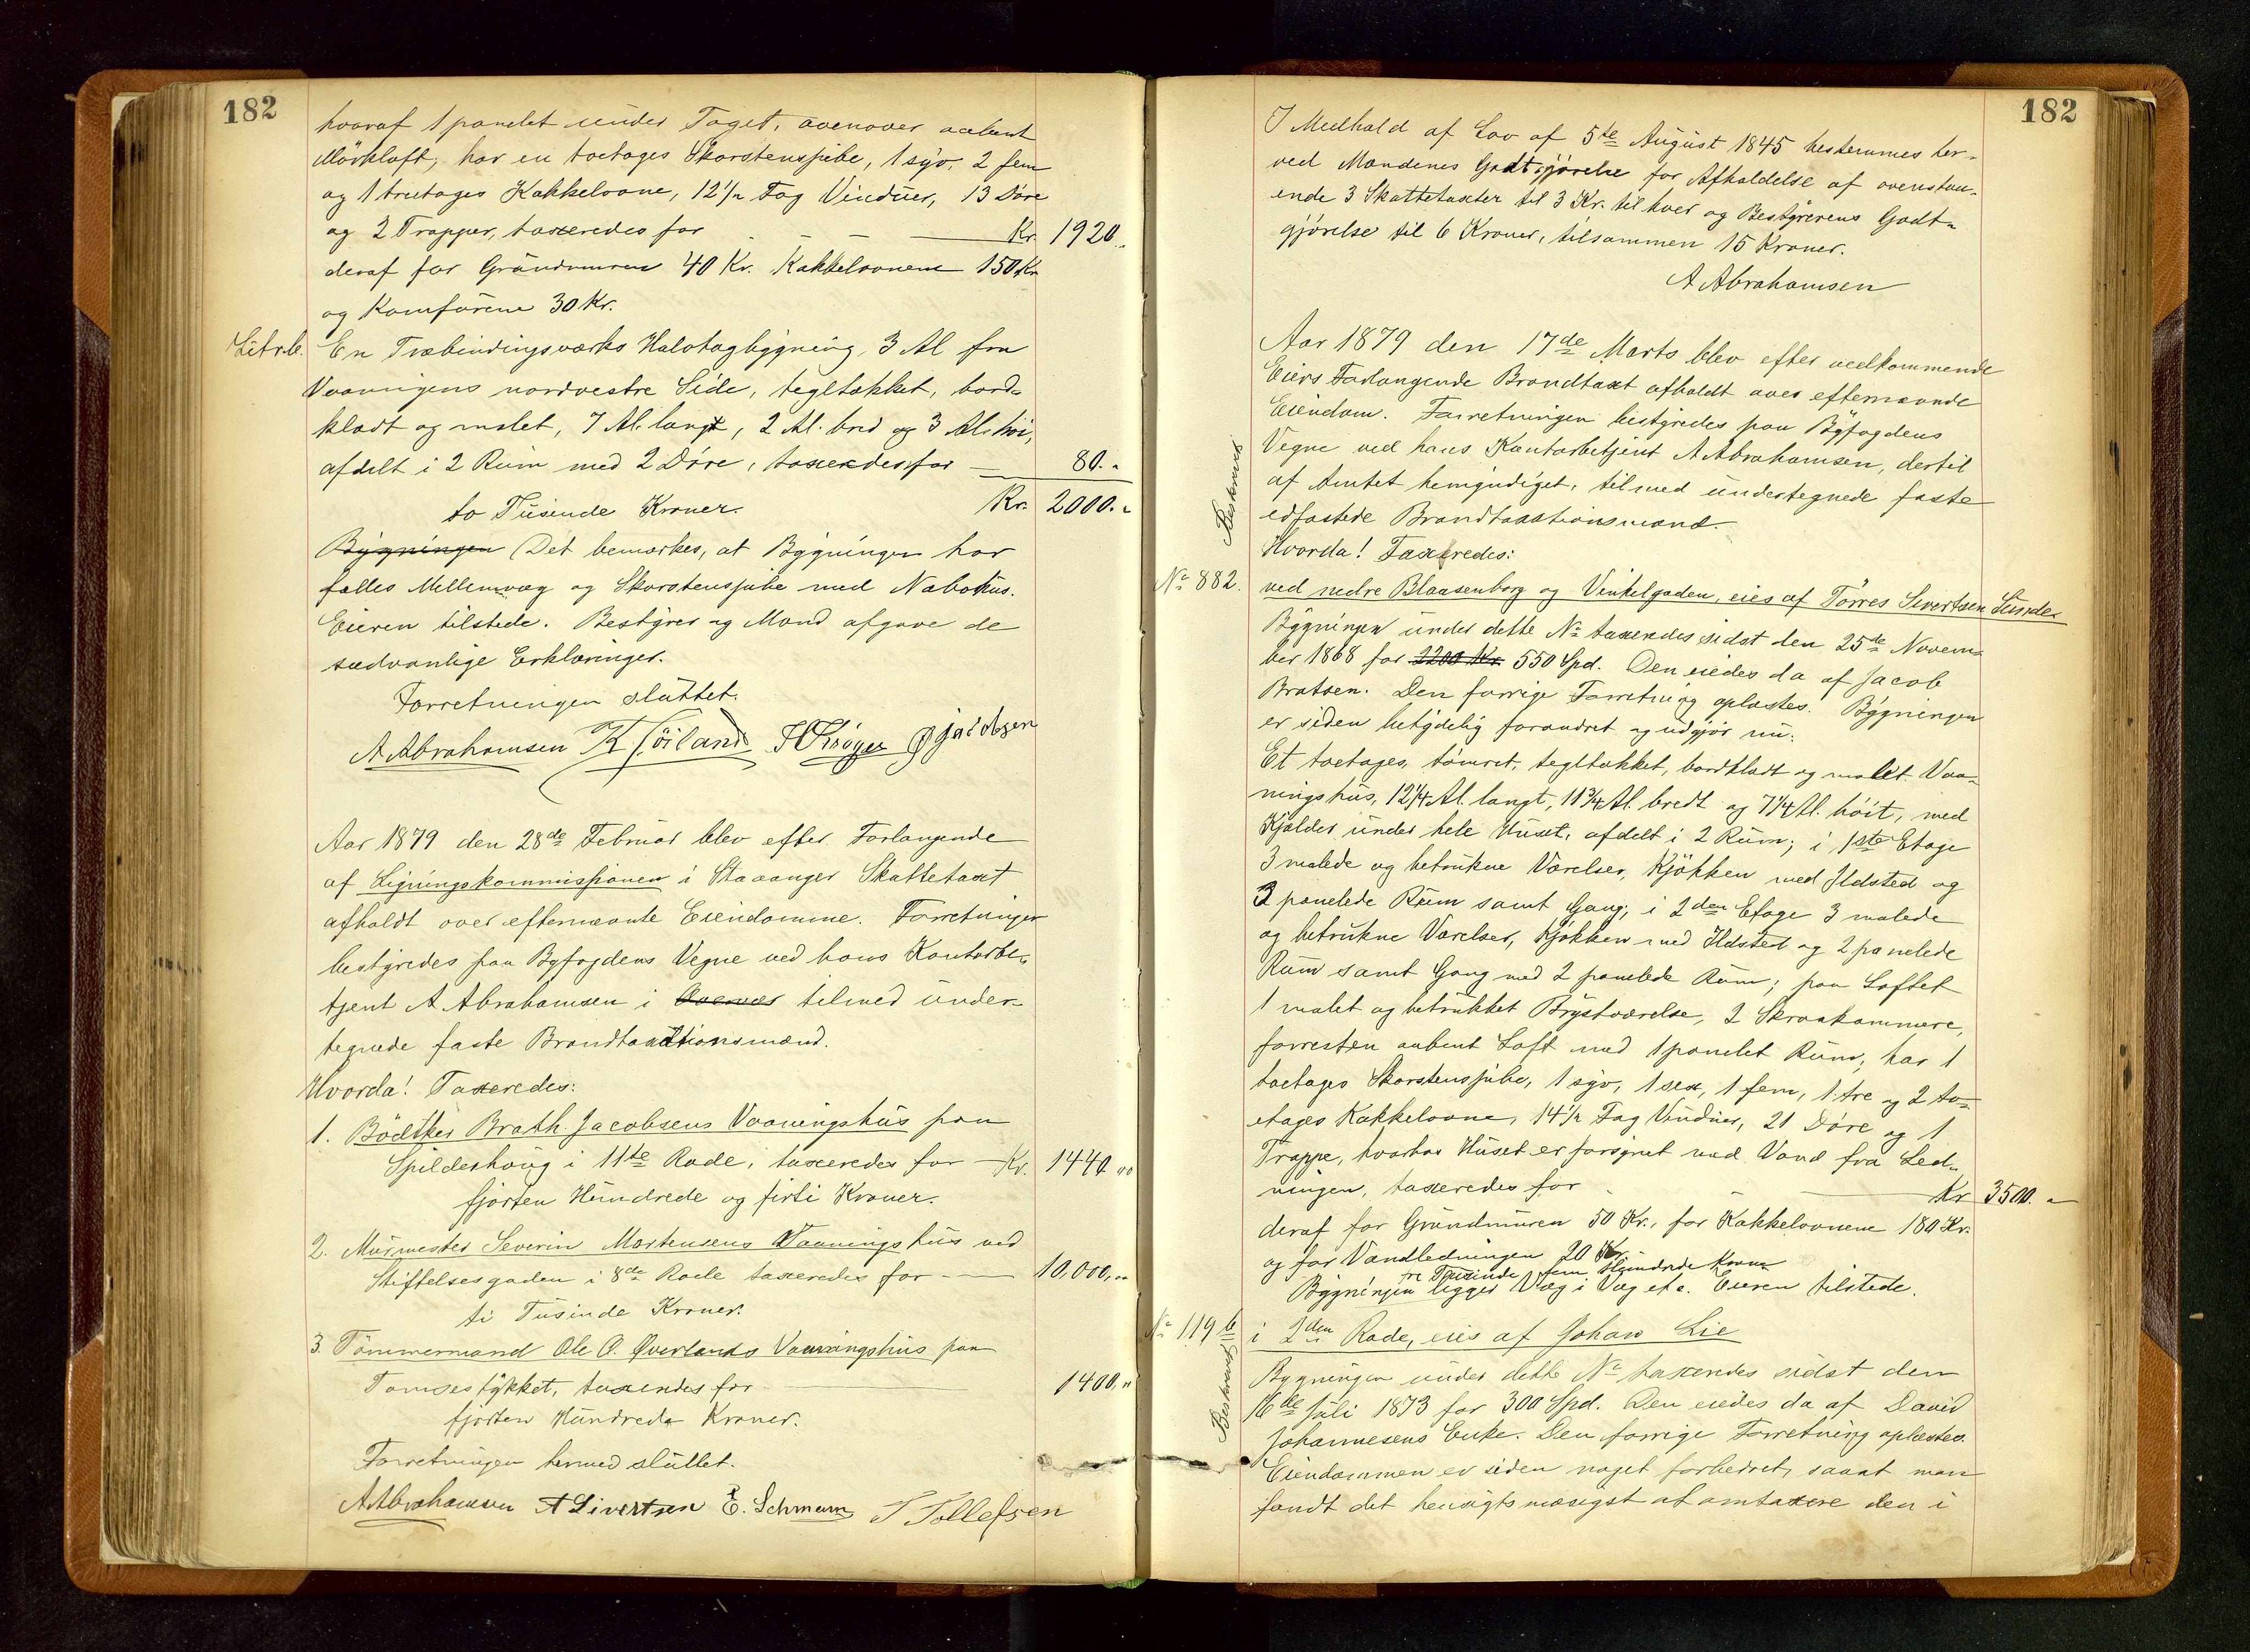 182
hvoraf 1 panelet under Taget, ovenover aabent
Mörkloft, har en toetages Skorstenspibe, 1 syv, 2 fem
og 1 treetages Kakkelovne, 12 1/2 Fag Vinduer, 13 Döre
og 2 Trapper, taxeredes for — Kr. 1920 "
deraf for Grundmuren 40 Kr. Kakkelovnene 150 Kr.
og Komfurene 30 Kr.
Litr. b. En Træbindingsværks Halvtagbygning, 3 Al fra
Vaaningens nordvestre Side, tegltækket, bord-
klædt og malet, 7 Al. langt, 2 Al. bred og 3 Al. höi,
afdelt i 2 Rum med 2 Döre, taxeredes for — 80. "
to Tusinde Kroner. Kr. 2000. "
Bygningen Det bemærkes, at Bygningen har
fælles Mellemvæg og Skorstenspibe med Nabohus.
Eieren tilstede. Bestyrer og Mænd afgave de
sædvanlige Erklæringer.
Forretningen sluttet.
A Abrahamsen
Aar 1879 den 28de Februar blev efter Forlangende
af Ligningskommissionen i Stavanger Skattetaxt
afholdt over efternævnte Eiendomme. Forretningen
bestyredes paa Byfogdens Vegne ved hans Kontorbe-
tjent A Abrahamsen i Overvær tilmed under-
tegnede faste Brandtaxationsmænd.
Hvorda! Taxeredes:
1. Bödtker Brath. Jacobsens Vaaningshus paa
Spilderhoug i 11te Rode, taxeredes for — Kr. 1440 "
fjorten Hundrede og firti Kroner.
2. Murmester Severin Mortensens Vaaningshus ved
Stiftelsesgaden i 8de Rode taxeredes for — 10,000, "
ti Tusinde Kroner.
3. Tömmermand Ole O. Överlands Vaaningshus paa
Tomsestykket, taxeredes for 1400, "
fjorten Hundrede Kroner.
Forretningen hermed sluttet.
A Abrahamsen A Sivertsen E. Schmum T Tollefsen
182
I Medhold af Lov af 5te August 1845 bestemmes her-
ved Mændenes Godtgjörelse for Afholdelse af ovenstaa-
ende 3 Skattetaxter til 3 Kr. til hver og Bestyrerens Godt-
gjörelse til 6 Kroner, tilsammen 15 Kroner.
A Abrahamsen
Aar 1879 den 17de Marts blev efter vedkommende
Eiers Forlangende Brandtaxt afholdt over efternævnte
Eiendom. Forretningen bestyredes paa Byfogdens
Vegne ved hans Kontorbetjent A Abrahamsen, dertil
af Amtet bemyndiget, tilmed undertegnede faste
edfæstede Brandtaxationsmænd.
Hvorda! Taxeredes:
Beskrevet
No 882. ved nedre Blaasenborg og Vinkelgaden, eies af Törres Sivertsen Lunde.
Bygningen under dette No taxeredes sidst den 25de Novem-
ber 1868 for 2200 Kr. 550 Spd. Den eiedes da af Jacob
Bratsen. Den forrige Forretning oplæstes. Bygningen
er siden betydelig forandret og udgjör nu:
Et toetages, tömret, tegltækket, bordklædt og malet Vaa-
ningshus, 12 1/4 Al. langt, 11 3/4 Al. bredt og 7 1/4 Al. höit, med
Kjælder under hele Huset, afdelt i 2 Rum; i 1ste Etage
3 malede og betrukne Værelser, Kjökken med Ildsted og
3 panelede Rum samt Gang; i 2den Etage 3 malede
og betrukne Værelser, Kjökken med Ildsted og 2 panelede
Rum samt Gang med 2 panelede Rum; paa Loftet
1 malet og betrukket Brystværelse, 2 Skraakammere,
forresten aabent Loft med 1 panelet Rum; har 1
toetages Skorstenspibe, 1 syv, 1 sex, 1 fem, 1 tre og 2 to-
etages Kakkelovne, 14 1/2 Fag Vinduer, 21 Döre og 1
Trappe, hvorhos Huset er forsynet med Vand fra Led-
ningen, taxeredes for — Kr 3500. "
deraf for Grundmuren 50 Kr., for Kakkelovnene 180 Kr.
og for Vandledningen 20 Kr.
tre Tusinde fem Hundrede Kroner
Bygningen ligger Væg i Væg etc. Eieren tilstede.
Beskrevet
No 119 b i 2den Rode, eies af Johan Lie
Bygningen under dette No taxeredes sidst den
16de Juli 1873 for 300 Spd. Den eiedes da af David
Johannesens Enke. Den forrige Forretning oplæstes.
Eiendommen er siden noget forbedret, saaat man
fandt det hensigtsmæssigst at omtaxere den i